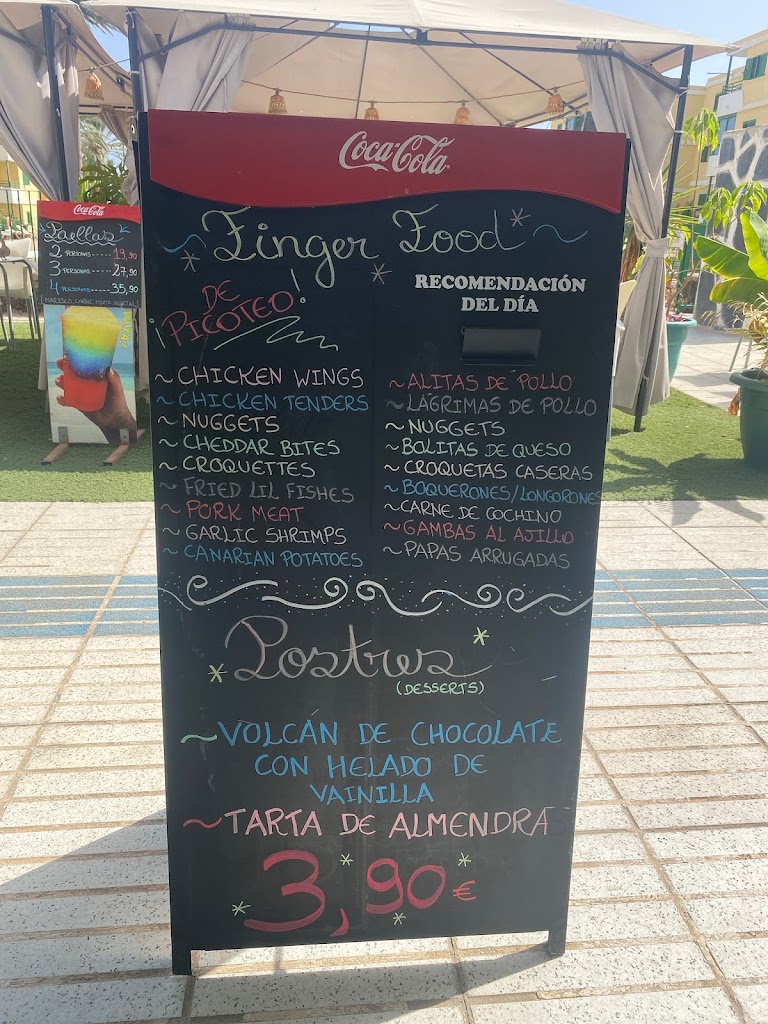 Coca-Cola
Finger Food
DE PICOTEO!
¡
RECOMENDACIÓN
DEL DÍA
~CHICKEN WINGS
~CHICKEN TENDERS
~NUGGETS
~CHEDDAR BITES
~CROQUETTES
~FRIED LIL FISHES
~PORK MEAT
~GARLIC SHRIMPS
~CANARIAN POTATOES
~ALITAS DE POLLO
~LÁGRIMAS DE POLLO
~NUGGETS
~BOLITAS DE QUESO
~CROQUETAS CASERAS
~BOQUERONES/LONGORONES
~CARNE DE COCHINO
~GAMBAS AL AJILLO
~PAPAS ARRUGADAS
Postres
(DESSERTS)
~VOLCÁN DE CHOCOLATE
CON HELADO DE
VAINILLA
~TARTA DE ALMENDRA
3,90€
Coca-Cola
Paellas
2 PERSONAS-----19,90
3 PERSONAS----27,90
4 PERSONAS----35,90
MARISCO, CARNE, MIXTA, VEGETAL